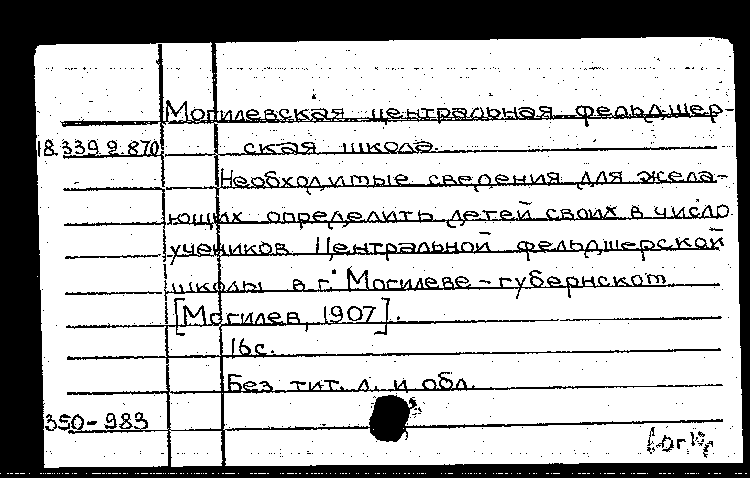 Могилевская центральная фельдшер-
18.339.9.870 ская школа.
Необходимые сведения для жела-
ющих определить детей своих в число
учеников Центральной фельдшерской
школы в г. Могилеве-губернском
[Могилев, 1907].
16с.
Без тит. л. и обл.
350-983